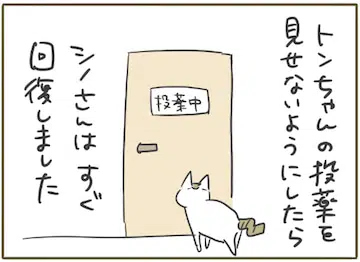 トンちゃんの投薬を
見せないようにしたら
投薬中
シノさんは すぐ
回復しました